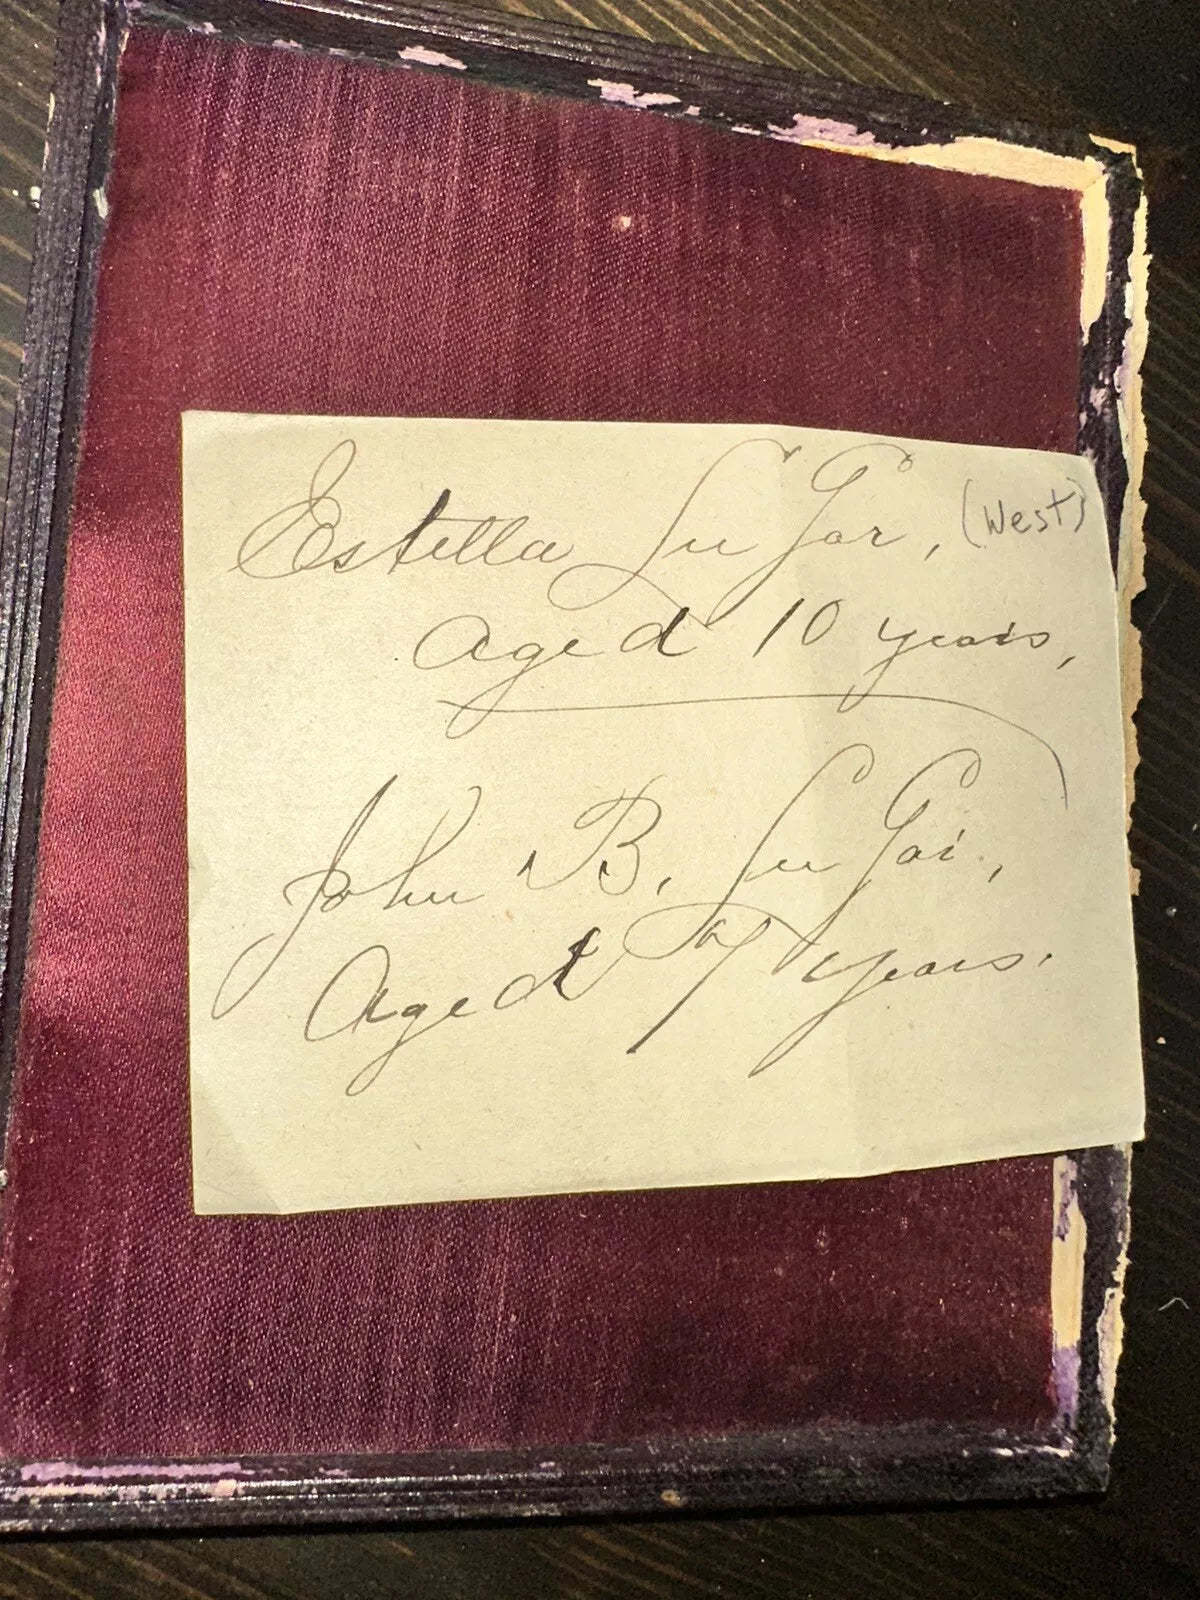 Estella LuGar, (West)
aged 10 years,
John B. LuGar,
Aged 7 years.